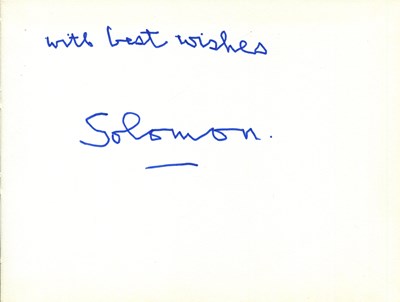 with best wishes
Solomon.